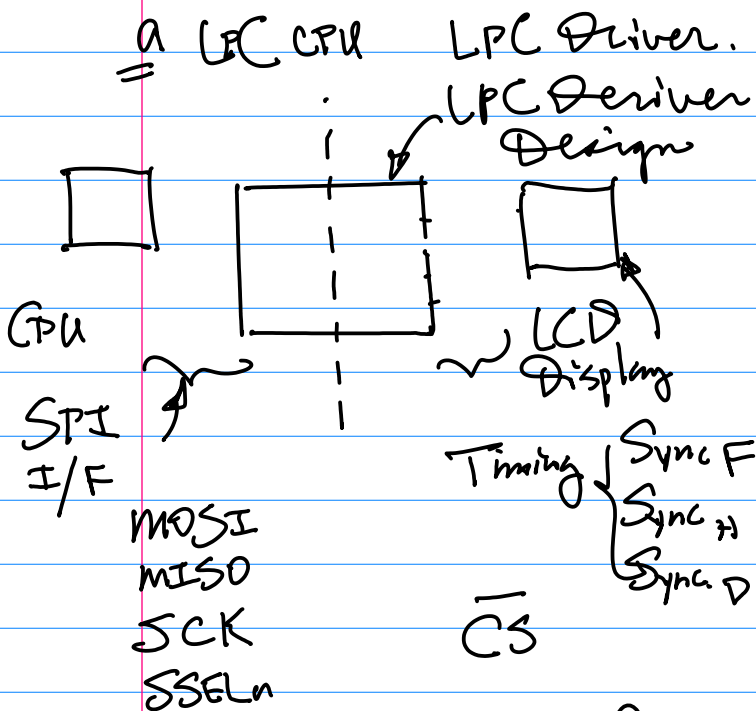 a LPC CPU LPC Driver.
LPC Deriver
Design
CPU
LCD
Display
SPI
I/F
Timing
Sync F
Sync H
Sync. D
MOSI
MISO
SCK
CS
SSELn